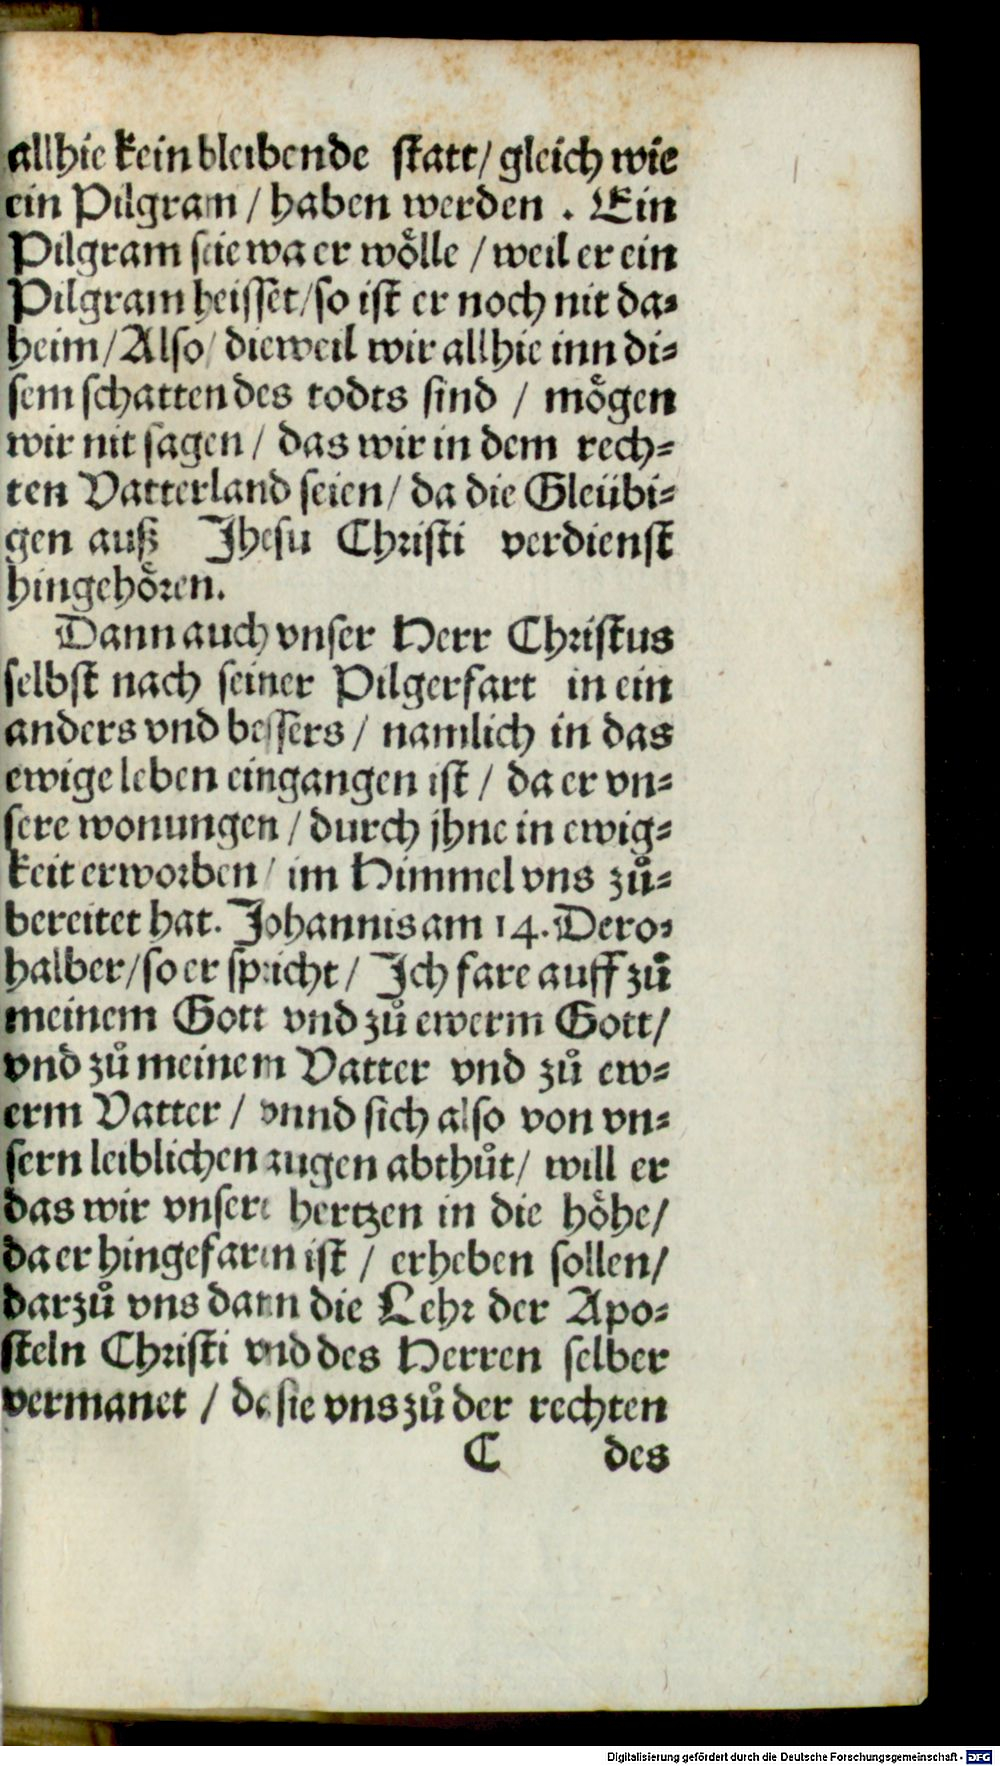 allhie kein bleibende statt/ gleich wie
ein Pilgram / haben werden . Ein
Pilgram seie wa er woͤlle / weil er ein
Pilgram heisset/so ist er noch nit da⸗
heim/Also/ dieweil wir allhie inn di⸗
sem schatten des todts sind / moͤgen
wir nit sagen/ das wir in dem rech⸗
ten Vatterland seien/ da die Gleübi⸗
gen auß Jhesu Christi verdienst
hingehoͤren.
Dann auch vnser Herr Christus
selbst nach seiner Pilgerfart in ein
anders vnd bessers/ namlich in das
ewige leben eingangen ist / da er vn⸗
sere wonungen / durch jhne in ewig⸗
keit erworben/ im Himmel vns zuͦ⸗
bereitet hat. Johannis am 14. Dero⸗
halber/so er spricht/ Jch fare auff zuͦ
meinem Gott vnd zuͦ ewerm Gott/
vnd zuͦ meinem Vatter vnd zuͦ ew⸗
erm Vatter / vnnd sich also von vn⸗
sern leiblichen augen abthuͦt/ will er
das wir vnsere hertzen in die hoͤhe/
da er hingefaren ist / erheben sollen/
darzuͦ vns dann die Lehr der Apo⸗
steln Christi vnd des Herren selber
vermanet / da sie vns zuͦ der rechten
C des
Digitalisierung gefördert durch die Deutsche Forschungsgemeinschaft - DFG